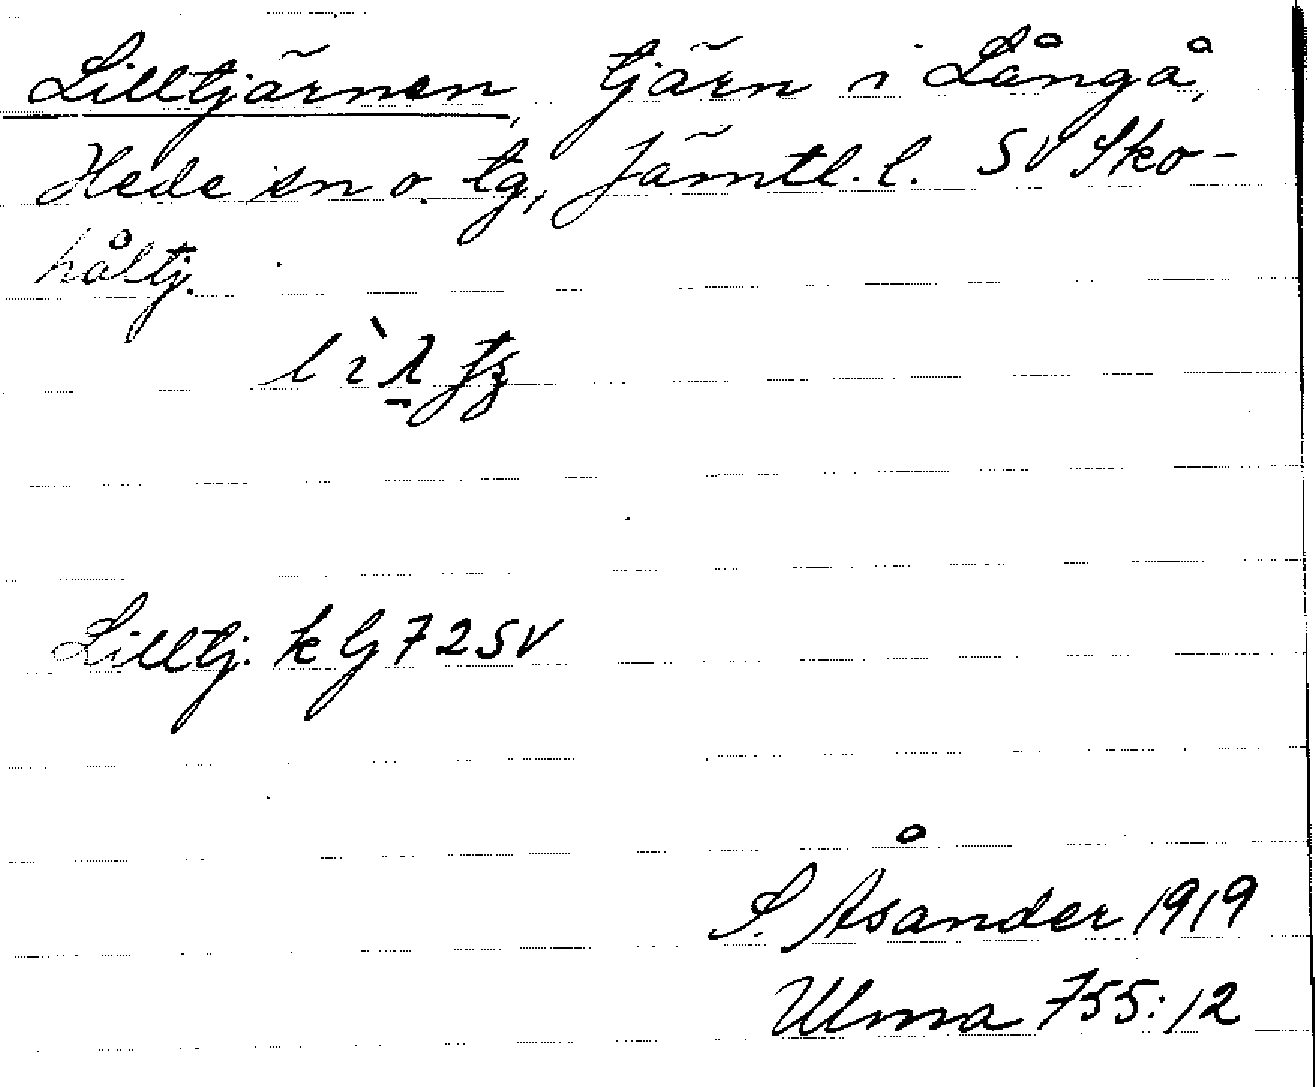 Lilltjärnen, tjärn i Långå,
Hede sn o. tg, Jämtl. l. SV Sko-
håltj.
Lilltj. k Gj 72 SV
S. Åsander 1919
Ulma 755:12